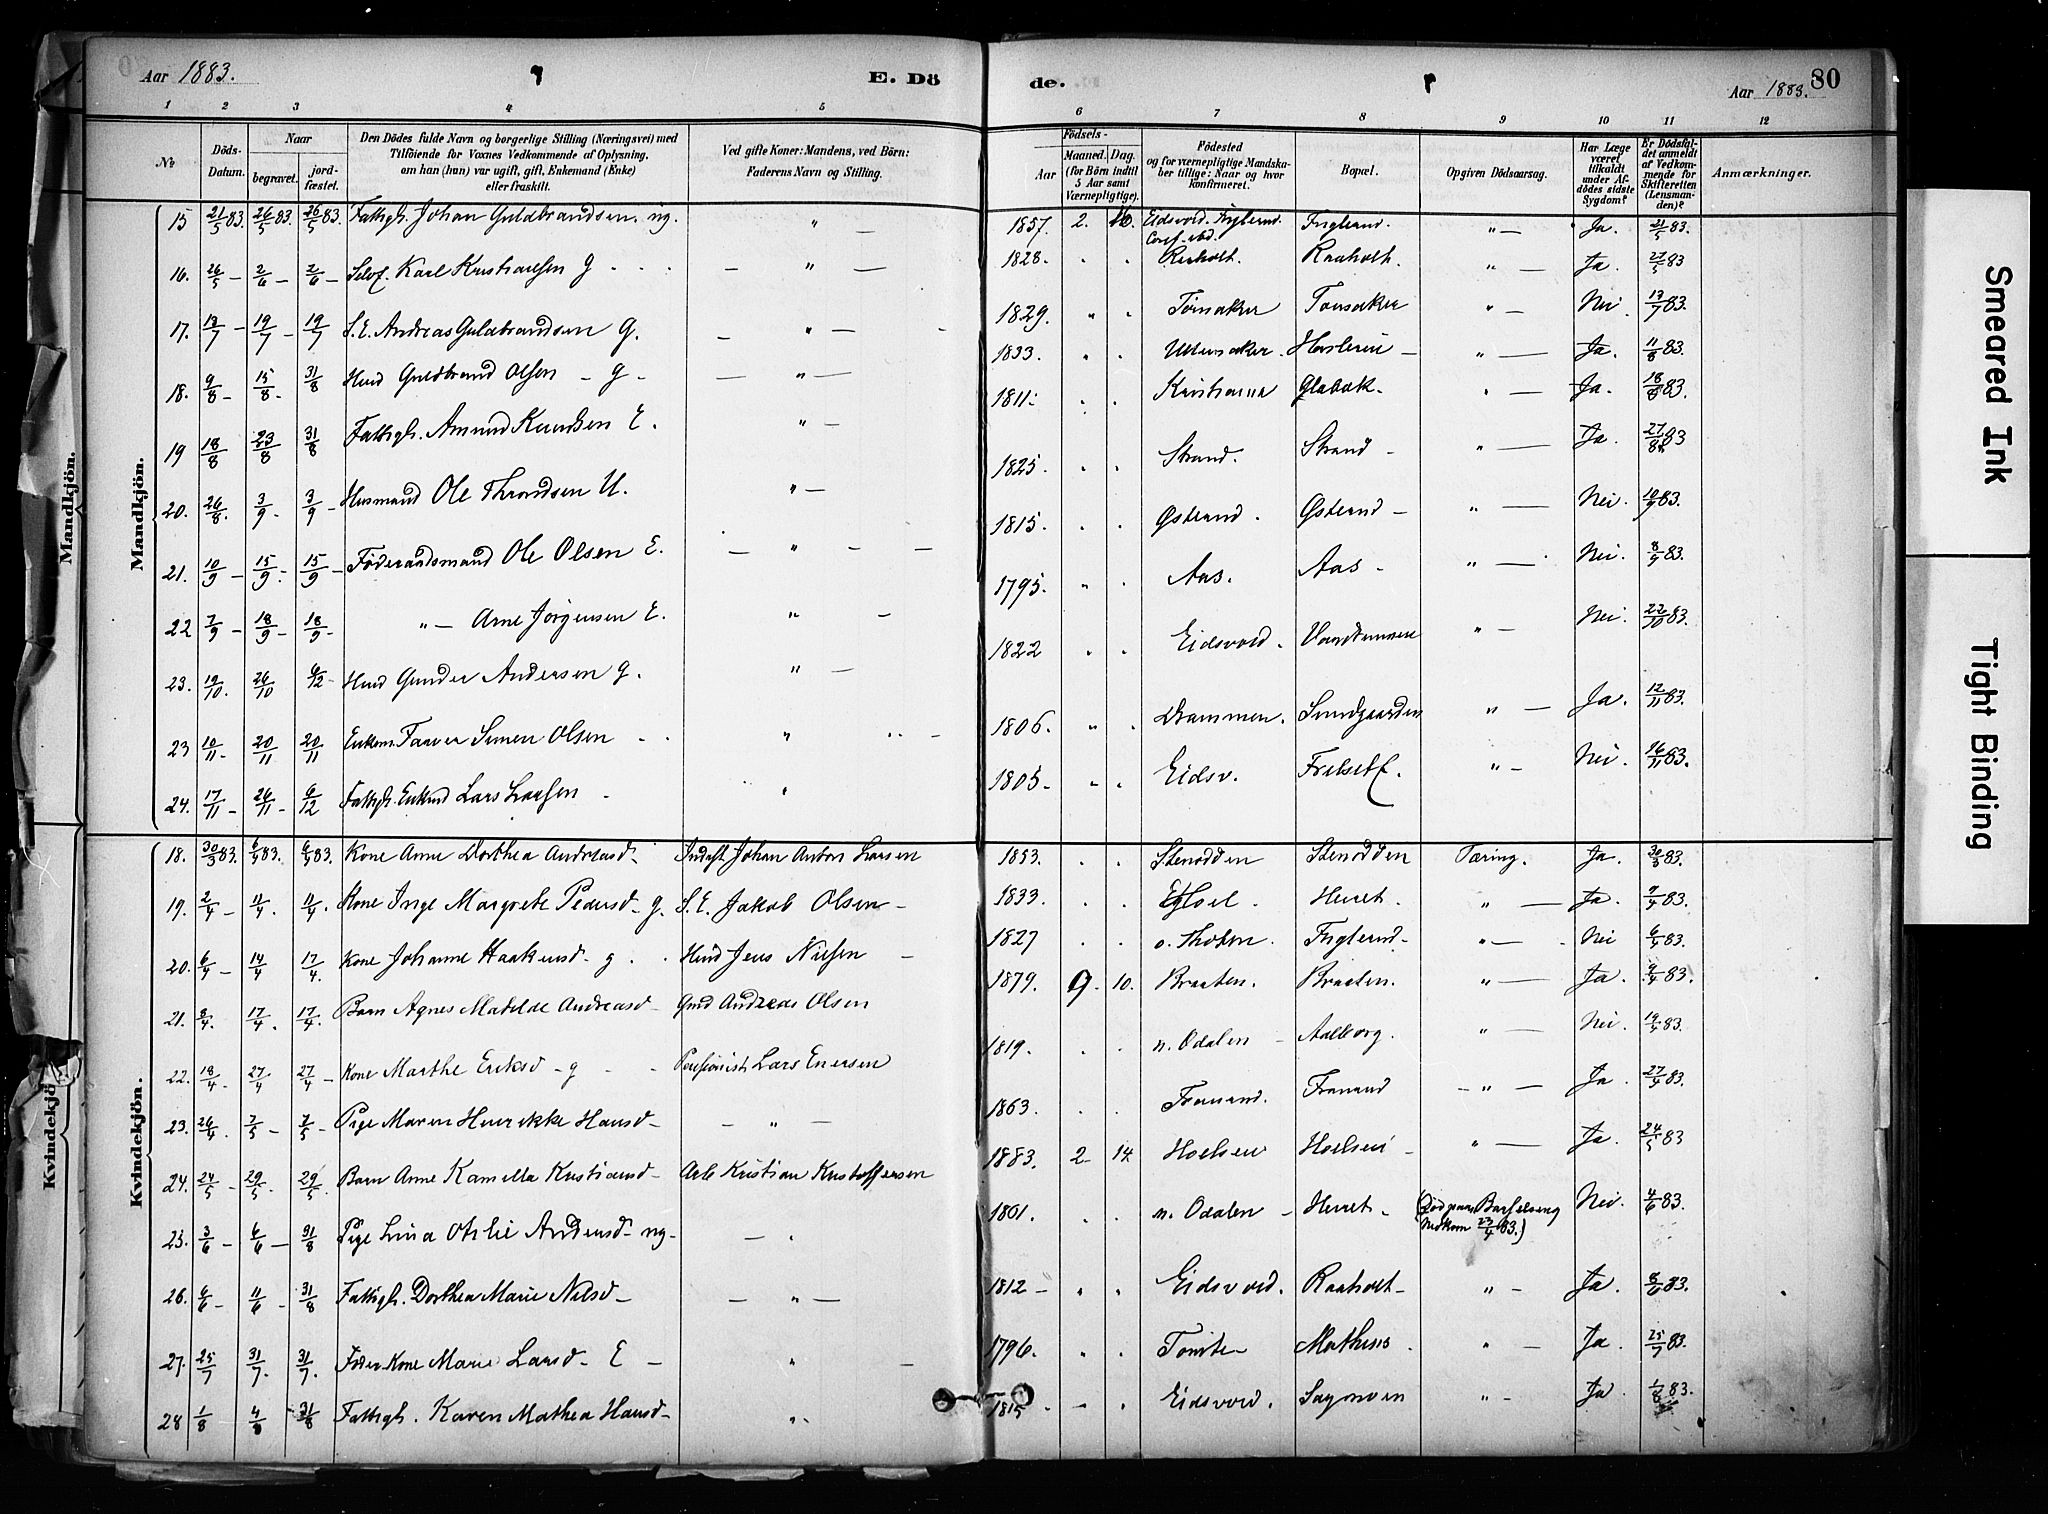 Aar 1883. E. Dö
de. Aar 1883. 80
1 2 3 4 5 6 7 8 9 10 11 12
№
Döds-Datum.
Naar
begravet.
jord-fæstet.
Den Dödes fulde Navn og borgerlige Stilling (Næringsvei) med
Tilföiende for Voxnes Vedkommende af Oplysning,
om han (hun) var ugift, gift, Enkemand (Enke)
eller fraskilt.
Ved gifte Koner: Mandens, ved Börn:
Faderens Navn og Stilling.
Födsels-
Aar
Maaned. Dag.
(for Börn indtil
5 Aar samt
Værnepligtige).
Födested
og for værnepligtige Mandska-
ber tillige: Naar og hvor
konfirmeret.
Bopæl.
Opgiven Dödsaarsag.
Har Læge
været
tilkaldt
under Af-
dödes sidste
Sygdom?
Er Dödsfal-
det anmeldt
af Vedkom-
mende for
Skifteretten
(Lensman-
den)?
Anmærkninger.
Mandkjön.
Mandkjön.
15 21/5 83. 26/5 83. 26/5 83. Fattigl. Johan Guldbrandsen. ug. " — 1857. 2. 16. Eidsvold. "— Ja. 21/5 83.
16. 26/5 — 2/6 — 2/6 — Selvf. Karl Kristiansen g — " — 1828. " " Raaholt. Raaholt. " — Ja. 27/5 83
17. 13/7 — 19/7 — 19/7 S. E. Andreas Guldbrandsen g. — " — 1829. " " Tønsaker Tonsaker " — Nei. 13/7 83.
18. 9/8 — 15/8 — 31/8 Husd Guldbrand Olsen — g — — " — 1833. " . Ullensaker. — " — Ja. 11/8 83.
19 18/8 23/8 31/8 Fattigl. Amund Knudsen E. " — 1811. . . Kristiania Glabak. " — Ja. 18/8 83.
20. 26/8. 3/9. 3/9 — Husmand Ole Throndsen U. " — 1825. . . Strand. Strand — " — Ja. 27/8 83
21. 10/9 — 15/9 — 15/9 — Føderaadsmand Ole Olsen E. — " — — 1815. . . Østrand. Østrand — " — Nei. 10/9 83.
22 7/9 — 18/9 — 18/9 — "— Arne Jörgensen E. " — 1795. " . Aas. Aas — " — Nei. 8/9 83.
23. 19/10. 26/10 6/12 — Husd Gunder Andersen g. " — 1822 . . Eidsvold. " — Nei. 22/10 83.
23 10/11 — 20/11 20/11 Enkem. Simen Olsen " 1806. " . Drammen. Sundgaarden " — Ja. 12/11 83.
24. 17/11 — 26/11 — 6/12 Fattigl. Enkmd Lars Larsen " 1805 — . . Eidsv. " — Nei. 16/11 83.
Kvindekjön
Kvindekjön.
18. 30/3 83. 6/4 83. 6/4 83. Kone Anne Dorthea Andreasd — Indst. Johan Anton Larsen 1853. . . Stenodden Stenodden Tæring. Ja. 30/3 83.
19. 2/4 — 11/4. 11/4. Kone Inge Margrete Pedersd — g. S. E. Jakob Olsen — 1833. . . Herret. " — Ja. 7/4 83.
20. 6/4 — 14/4 17/4. Kone Johanne Haakensd — g. Husd Jens Nilsen — 1827 . . " — Nei 6/4 83.
21. 8/4. 17/4. 17/4. Barn Agnes Matilde Andreasd — Gmd Andreas Olsen 1879. 9. 10. Braaten. Braaten. " — Ja. 9/4 83.
22. 18/4 27/4 27/4 — Kone Marthe Eriksd — g — Pensionist Lars Enersen 1819. . . n. Odalen — Aalborg. " — Nei. 19/4 83.
23. 26/4. 7/5 — 7/5 — Pige Maren Henrikke Hansd — — " — 1863. . . — " — Ja. 27/4 83.
24. 24/5 — 29/5. 29/5. Barn Anne Kamilla Kristiansd — Arb Kristian Kristoffersen 1883. 2 14. Hoelsen Hoelsen — " — Ja. 24/5 83
25. 3/6 — 6/6 — 31/8 Pige Lina Otilie Andersd — ug — — " 1861. . . n. Odalen — Herret — (Død paa Barselseng Nedkom 23/4 83.) Nei. 4/6 83.
26. 6/6 — 11/6 — 31/8 Fattigl. Dorthea Marie Nilsd — — " — 1812 — . . Eidsvold. Raaholt — " — Ja. 8/6 83.
27. 25/7 31/7. 31/7. Føder. Kone Marie Larsd — E — " — 1796. . . " — Ja. 25/7 83.
28 1/8 4/8 — 31/8 Fattigl. Karen Mathea Hansd — " 1815 . — . Eidsvold. Sagmoen " — Ja. 1/8 83.
Smeared Ink
Tight Binding